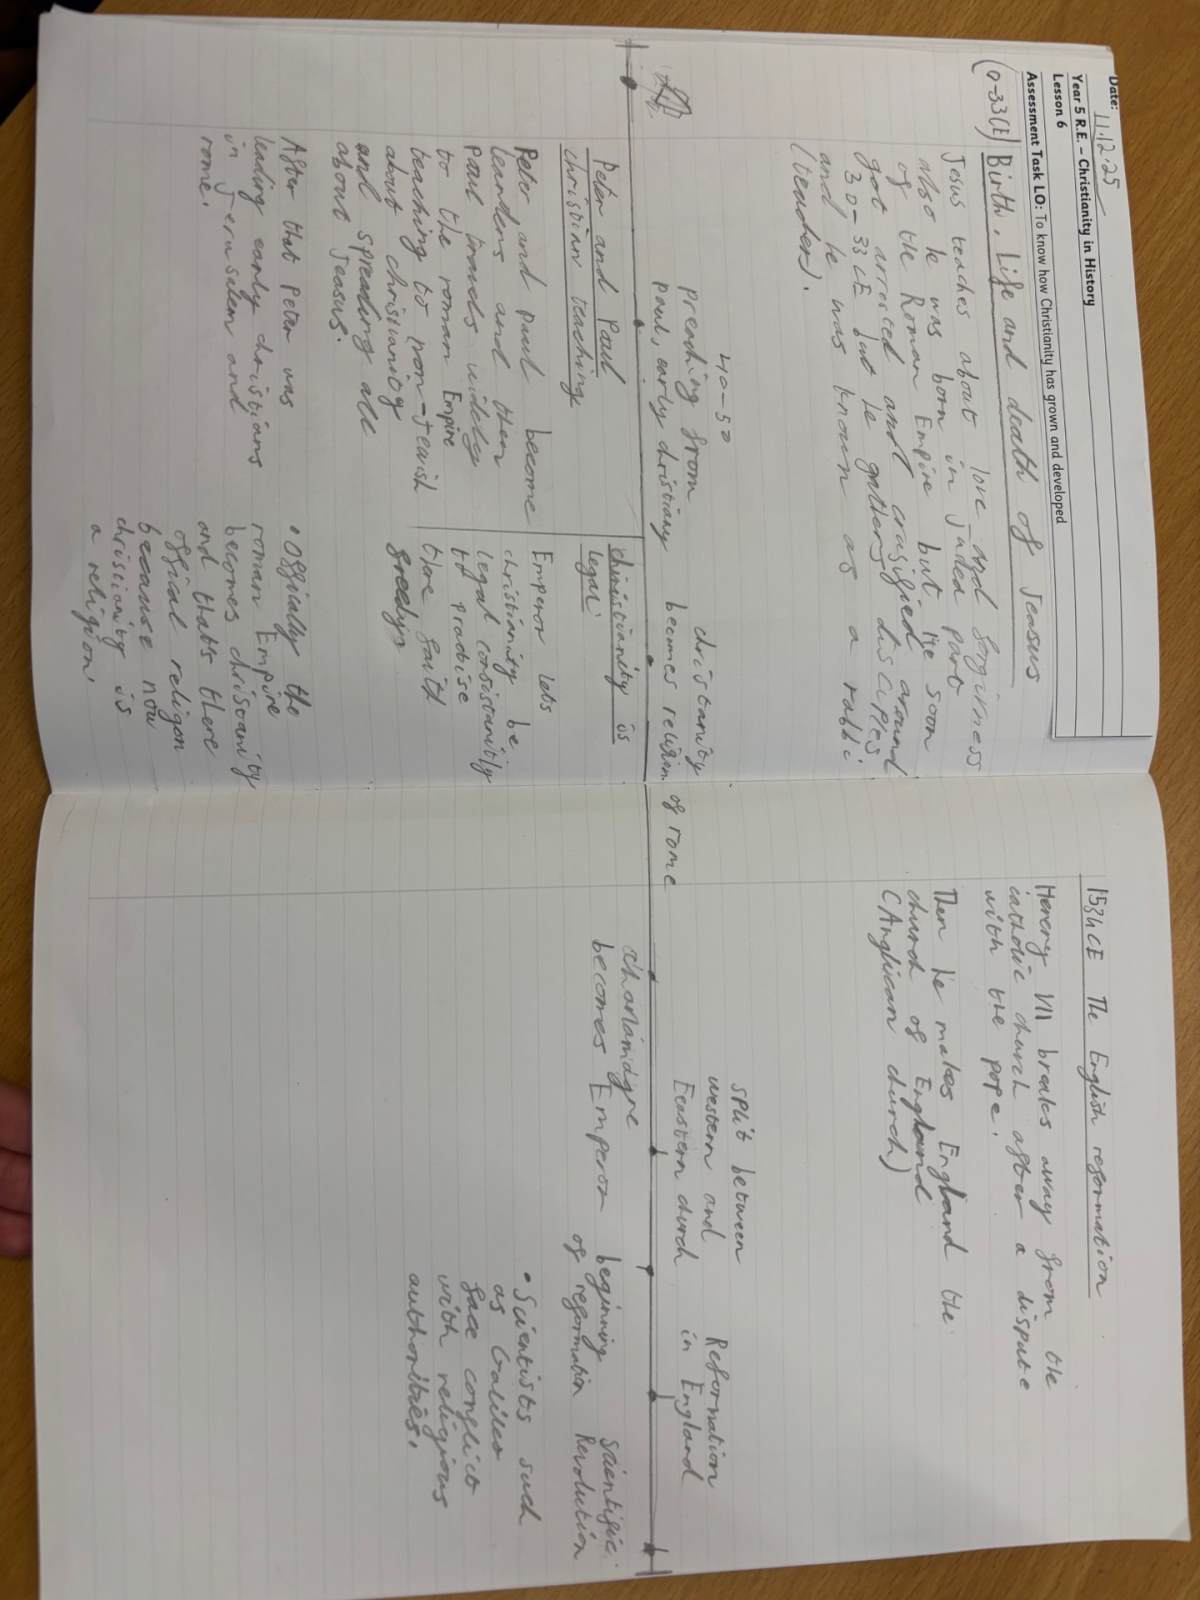 Date: 11.12.25
Year 5 R.E. – Christianity in History
Lesson 6
Assessment Task LO: To know how Christianity has grown and developed
(0-33CE) Birth, Life and death of Jeasus
Jesus teaches about love and forgivness
also he was born in Judea part
of the Roman Empire but he soon
got arrested and crusified around
30-33CE but he gathers disciples
and he was known as a rabbi
(teacher).
40-50
preaching from
paul, early christiany
christianity
becomes religion of rome
Peter and Paul
christian teaching
Peter and paul become
leanders and then
paul travels widley
to the roman Empire
teaching to non-jewish
about christianity
and spreading all
about Jeasus.
After that peter was
leading early christians
in Jerusalem and
rome.
christianity is
legal.
Emperor lets
christianity be
legal consistantly
to pradise
there faith
freedly
• Offically the
roman Empire
becomes christianity
and that's there
offical religon
because now
christianity is
a religion.
1534CE The English reformation
Henery VII breaks away from the
catholic church after a dispute
with the pope.
Then he makes England the
church of England
(Anglican church)
split between
western and
Eeastern church
Reformation
in England
charlamidgne
becomes Emperor
beginning
of reformation
scientific
Revolution
• Scientists such
as Galileo
face conflict
with religious
authorities.